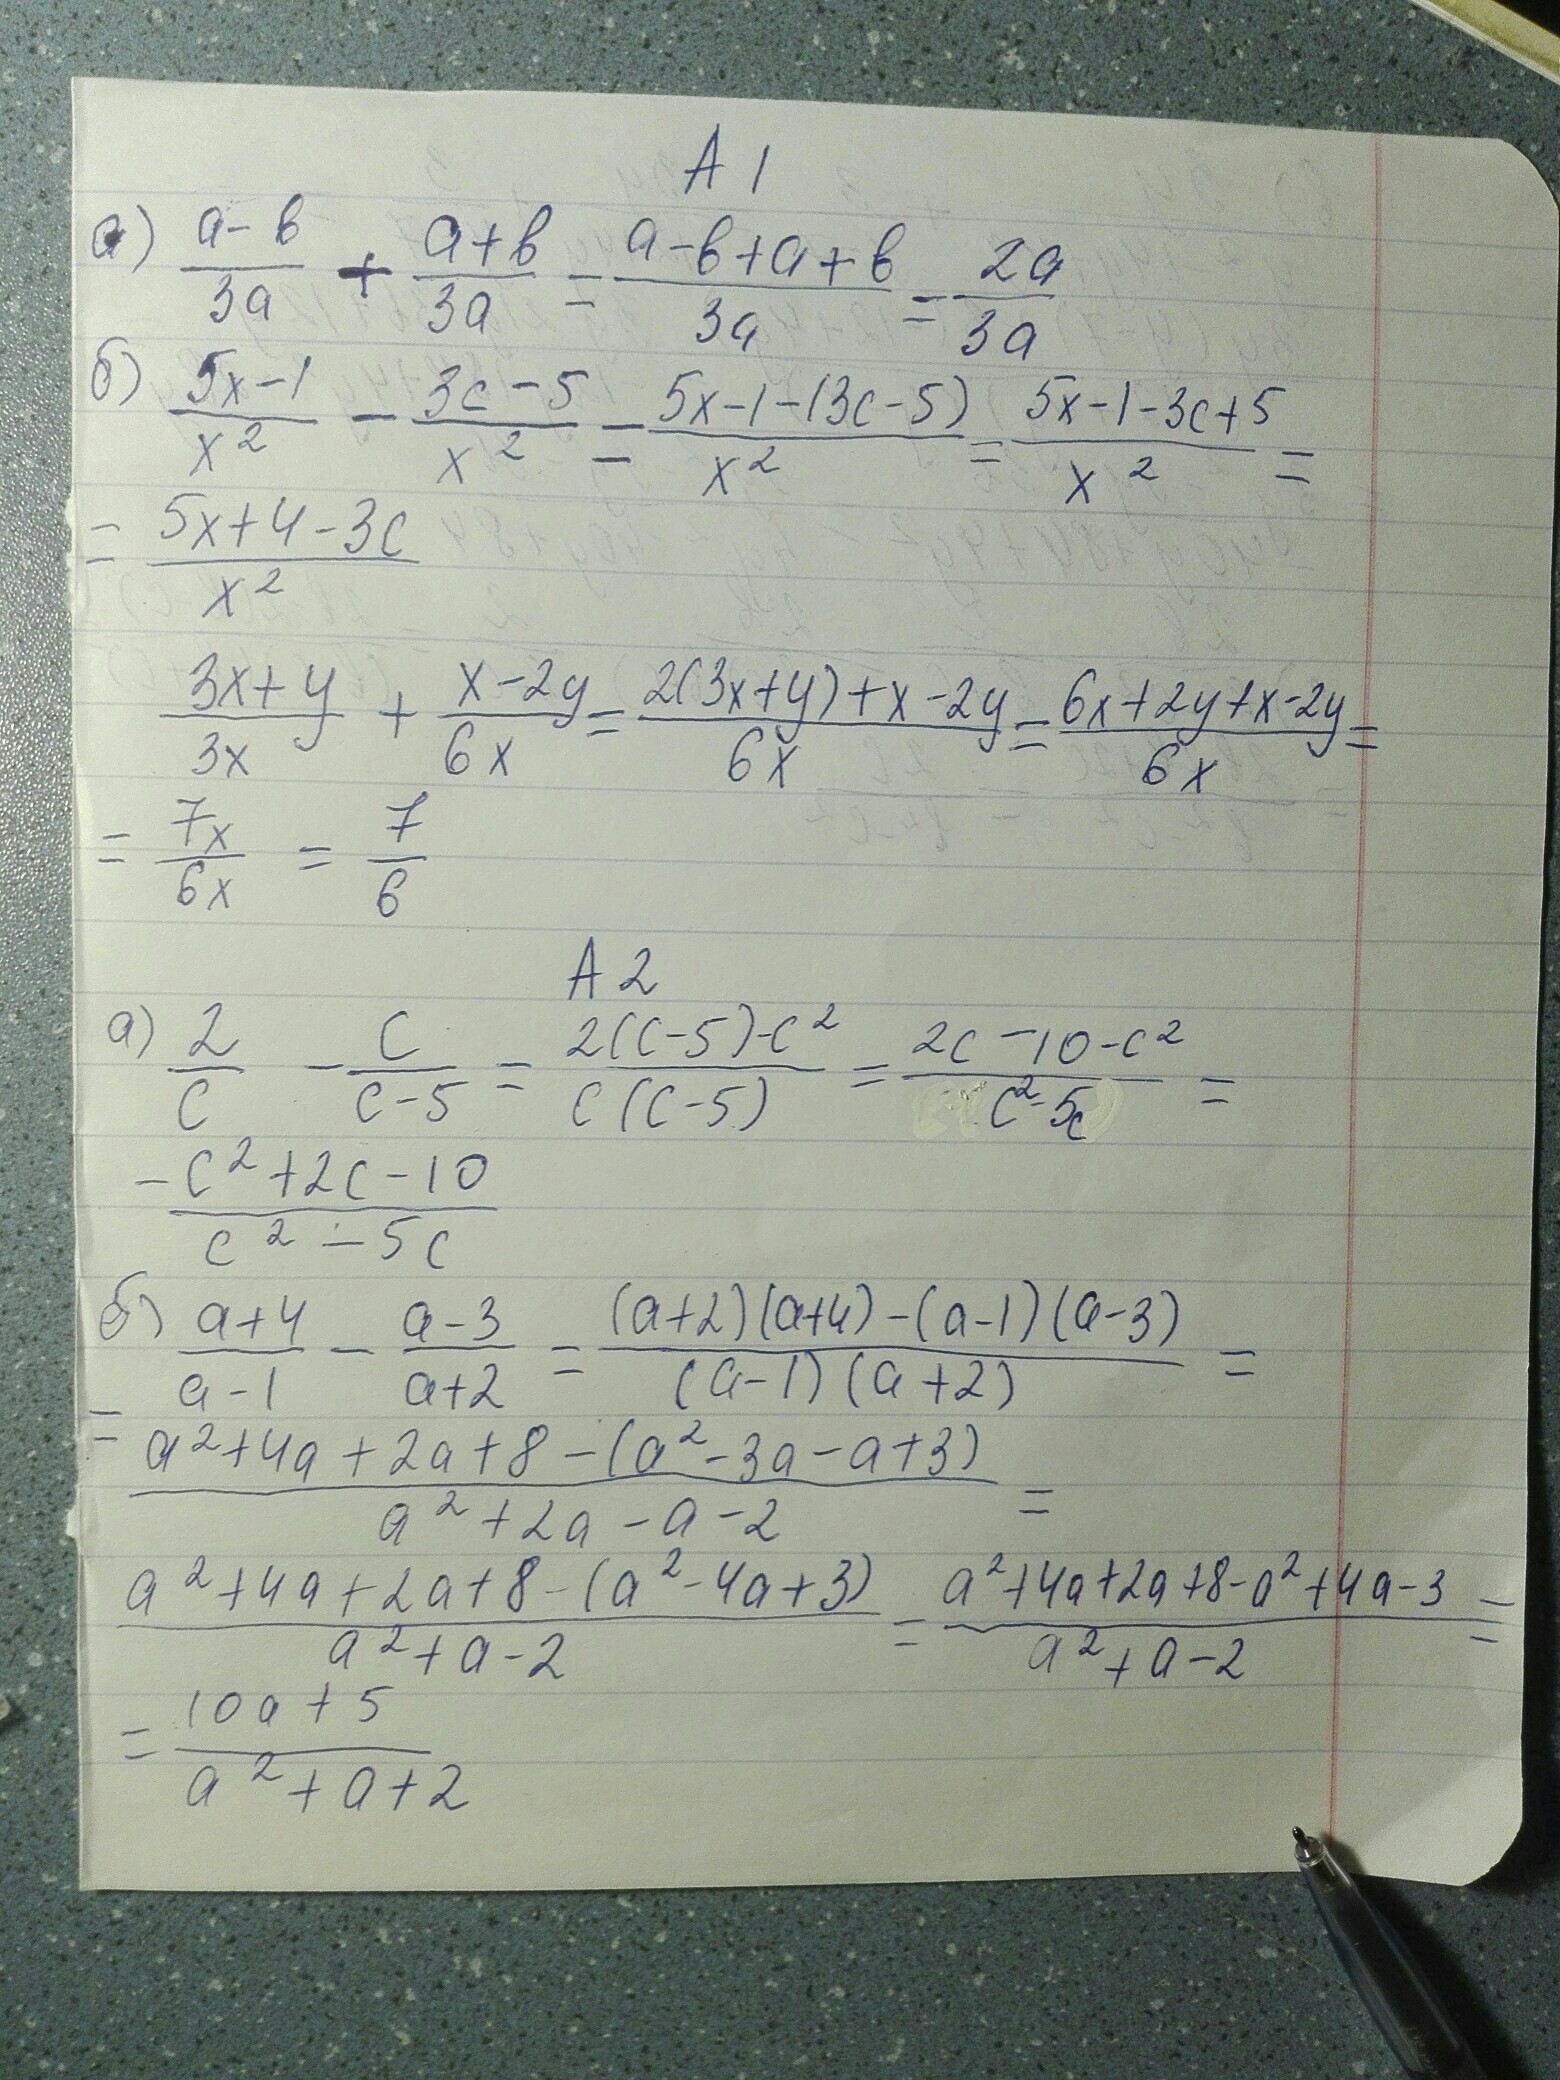 А 1
а) (a-b)/(3a) + (a+b)/(3a) = (a-b+a+b)/(3a) = (2a)/(3a)
б) (5x-1)/(x²) - (3c-5)/(x²) = (5x-1-(3c-5))/(x²) = (5x-1-3c+5)/(x²) =
= (5x+4-3c)/(x²)
(3x+y)/(3x) + (x-2y)/(6x) = (2(3x+y)+x-2y)/(6x) = (6x+2y+x-2y)/(6x) =
= (7x)/(6x) = 7/6
А 2
а) 2/c - c/(c-5) = (2(c-5)-c²)/(c(c-5)) = (2c-10-c²)/(c²-5c) =
(-c²+2c-10)/(c²-5c)
б) (a+4)/(a-1) - (a-3)/(a+2) = ((a+2)(a+4)-(a-1)(a-3))/((a-1)(a+2)) =
= (a²+4a+2a+8-(a²-3a-a+3))/(a²+2a-a-2) =
(a²+4a+2a+8-(a²-4a+3))/(a²+a-2) = (a²+4a+2a+8-a²+4a-3)/(a²+a-2) =
= (10a+5)/(a²+a+2)